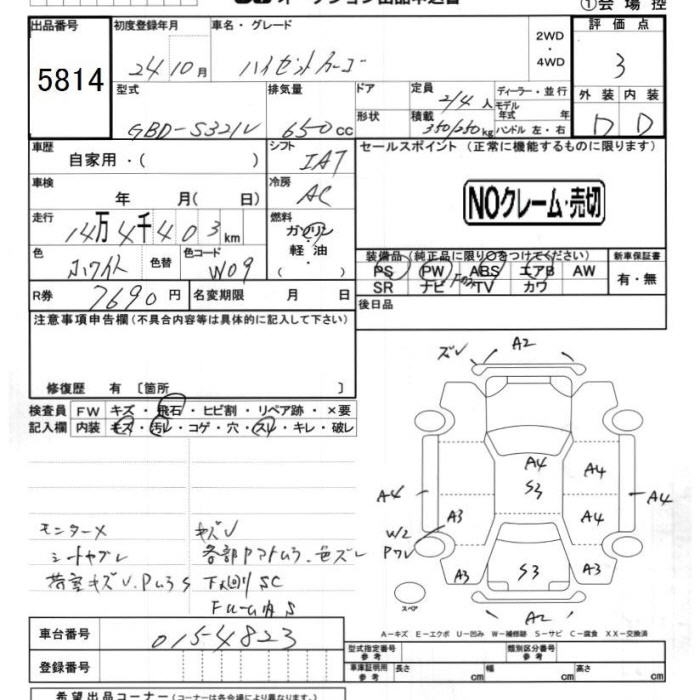 オークション出品申込書
①会場控
出品番号 初度登録年月 車名・グレード 2WD・4WD 評価点
5814 24 10月 ハイゼットカーゴ 3
型式 排気量 ドア 定員 2/4人 ディーラー・並行 外装 内装
GBD-S321V 650cc 形状 積載 350/250kg モデル年式 年 ハンドル 左・右 D D
車歴 自家用・( ) シフト IAT セールスポイント (正常に機能するものに限ります)
車検 年 月( 日) 冷房 AC NOクレーム・売切
走行 14万4千403km 燃料 ガソリン・軽油・( )
色 ホワイト 色替 色コード W09
装備品 (純正品に限り○をつけてください) 新車保証書
PS PW ABS エアB AW 有・無
SR ナビ TV カワ
R券 7690円 名変期限 月 日 後日品
注意事項申告欄(不具合内容等は具体的に記入して下さい)
修復歴 有 〔箇所 〕
検査員記入欄 FW キズ・飛石・ヒビ割・リペア跡・×要
内装 キズ・汚レ・コゲ・穴・スレ・キレ・破レ
ズレ A2
A4 A4
S3
A4 A4
A3 A4
W2
Pワレ
A3 S3 A3
スペア
A2
モニターX キズV
シートヤブレ
荷室キズV.PムラS 下廻りSC
A-キズ E-エクボ U-凹み W-補修跡 S-サビ C-腐食 XX-交換済
車台番号 0154823
型式指定番号 参考 類別区分番号 参考
登録番号 車庫証明用 参考 長さ cm 幅 cm 高さ cm
希望出品コーナー(コーナーは各会場により異なります。)